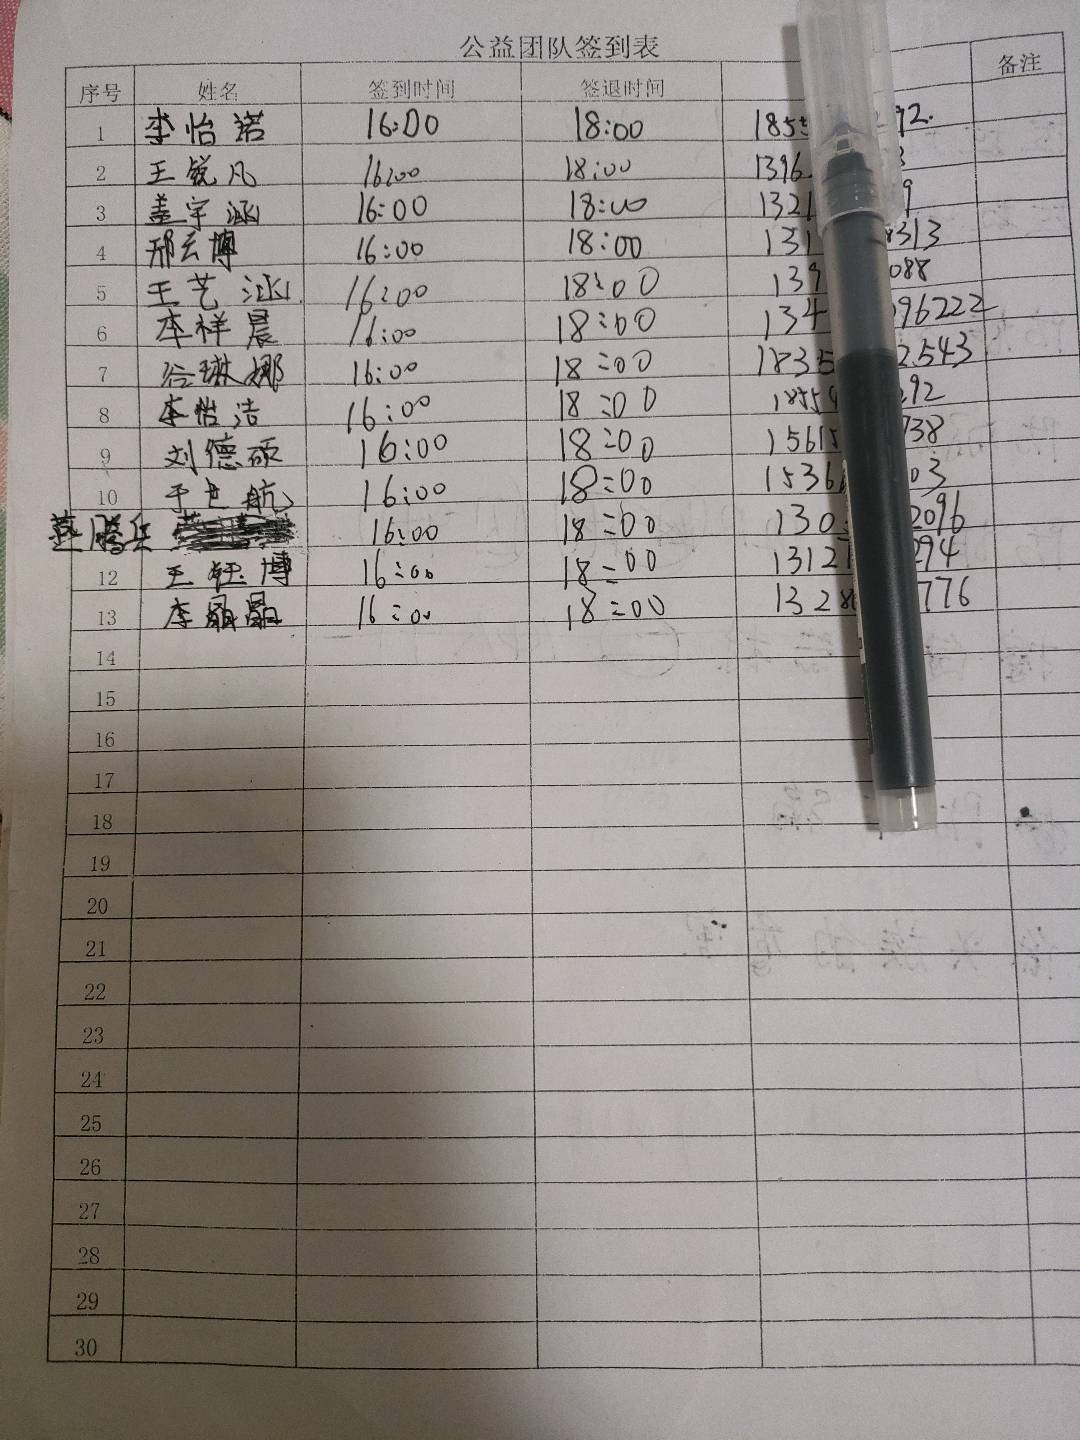 公益团队签到表
序号 姓名 签到时间 签退时间 备注
1 李怡诺 16:00 18:00 1855 92.
2 王锐凡 16:00 18:00 1396 3
3 盖宇涵 16:00 18:00 1321 9
4 邢云博 16:00 18:00 131 8313
5 王艺涵 16:00 18:00 139 088
6 李祥晨 16:00 18:00 134 96222
7 谷琳娜 16:00 18:00 1835 2543
8 李怡洁 16:00 18:00 1855 92
9 刘德硕 16:00 18:00 15615 738
10 于世航 16:00 18:00 1536 03
燕腾兵 16:00 18:00 130 2096
12 王钰博 16:00 18:00 1312 294
13 李晶晶 16:00 18:00 1328 776
14
15
16
17
18
19
20
21
22
23
24
25
26
27
28
29
30